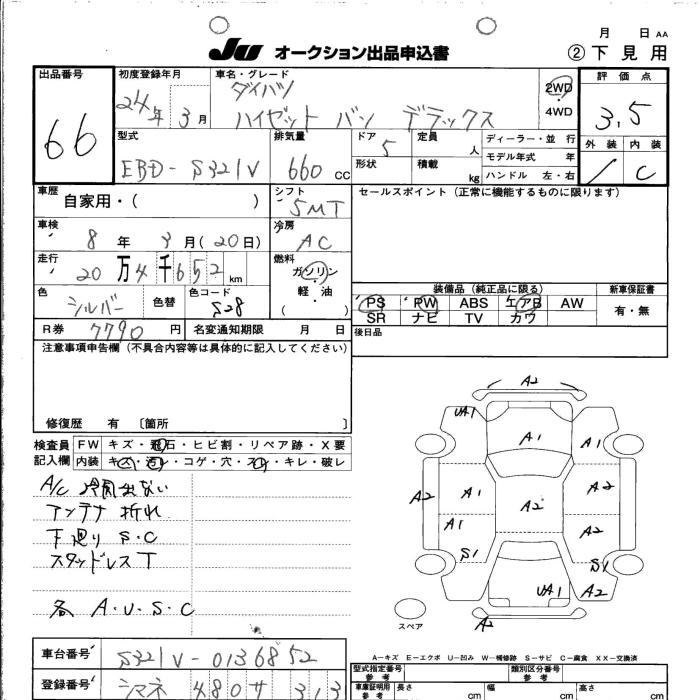 月 日 AA
JU オークション出品申込書 ② 下見用
出品番号 初度登録年月 車名・グレード 評価点
66 24年 3月 ダイハツ 2WD 3.5
ハイゼット バン デラックス 4WD
型式 排気量 ドア 定員 ディーラー・並 行 外装 内装
EBD-S321V 660 CC 5 人 モデル年式 年 / C
形状 積載 kg ハンドル 左・右
車歴 自家用・( ) シフト 5MT セールスポイント (正常に機能するものに限ります)
車検 8年 3月(20日) 冷房 AC
走行 20万4千652km 燃料 ガソリン
軽・油
( )
色 シルバー 色替 色コード S28
装備品 (純正品に限る) 新車保証書
PS PW ABS エアB AW 有・無
SR ナビ TV カワ
R券 7790円 名変通知期限 月 日 後日品
注意事項申告欄 (不具合内容等は具体的に記入してください)
修復歴 有 〔箇所 〕
検査員 FW キズ・飛石・ヒビ割・リペア跡・X要
記入欄 内装 キズ・汚レ・コゲ・穴・スレ・キレ・破レ
A/C 冷風出ない
アンテナ 折れ
下廻り S.C
スタッドレスT
各 A.U.S.C
A2
UA1
A1
A1
A2
A1
A2
A2
A1
A2
S1
S1
UA1
A2
A2
スペア
A-キズ E-エクボ U-凹み W-補修跡 S-サビ C-腐食 XX-交換済
車台番号 S321V-0136852
型式指定番号 参考 類別区分番号 参考
登録番号 シマネ 480 サ 313
車庫証明用 参考 長さ cm 幅 cm 高さ cm